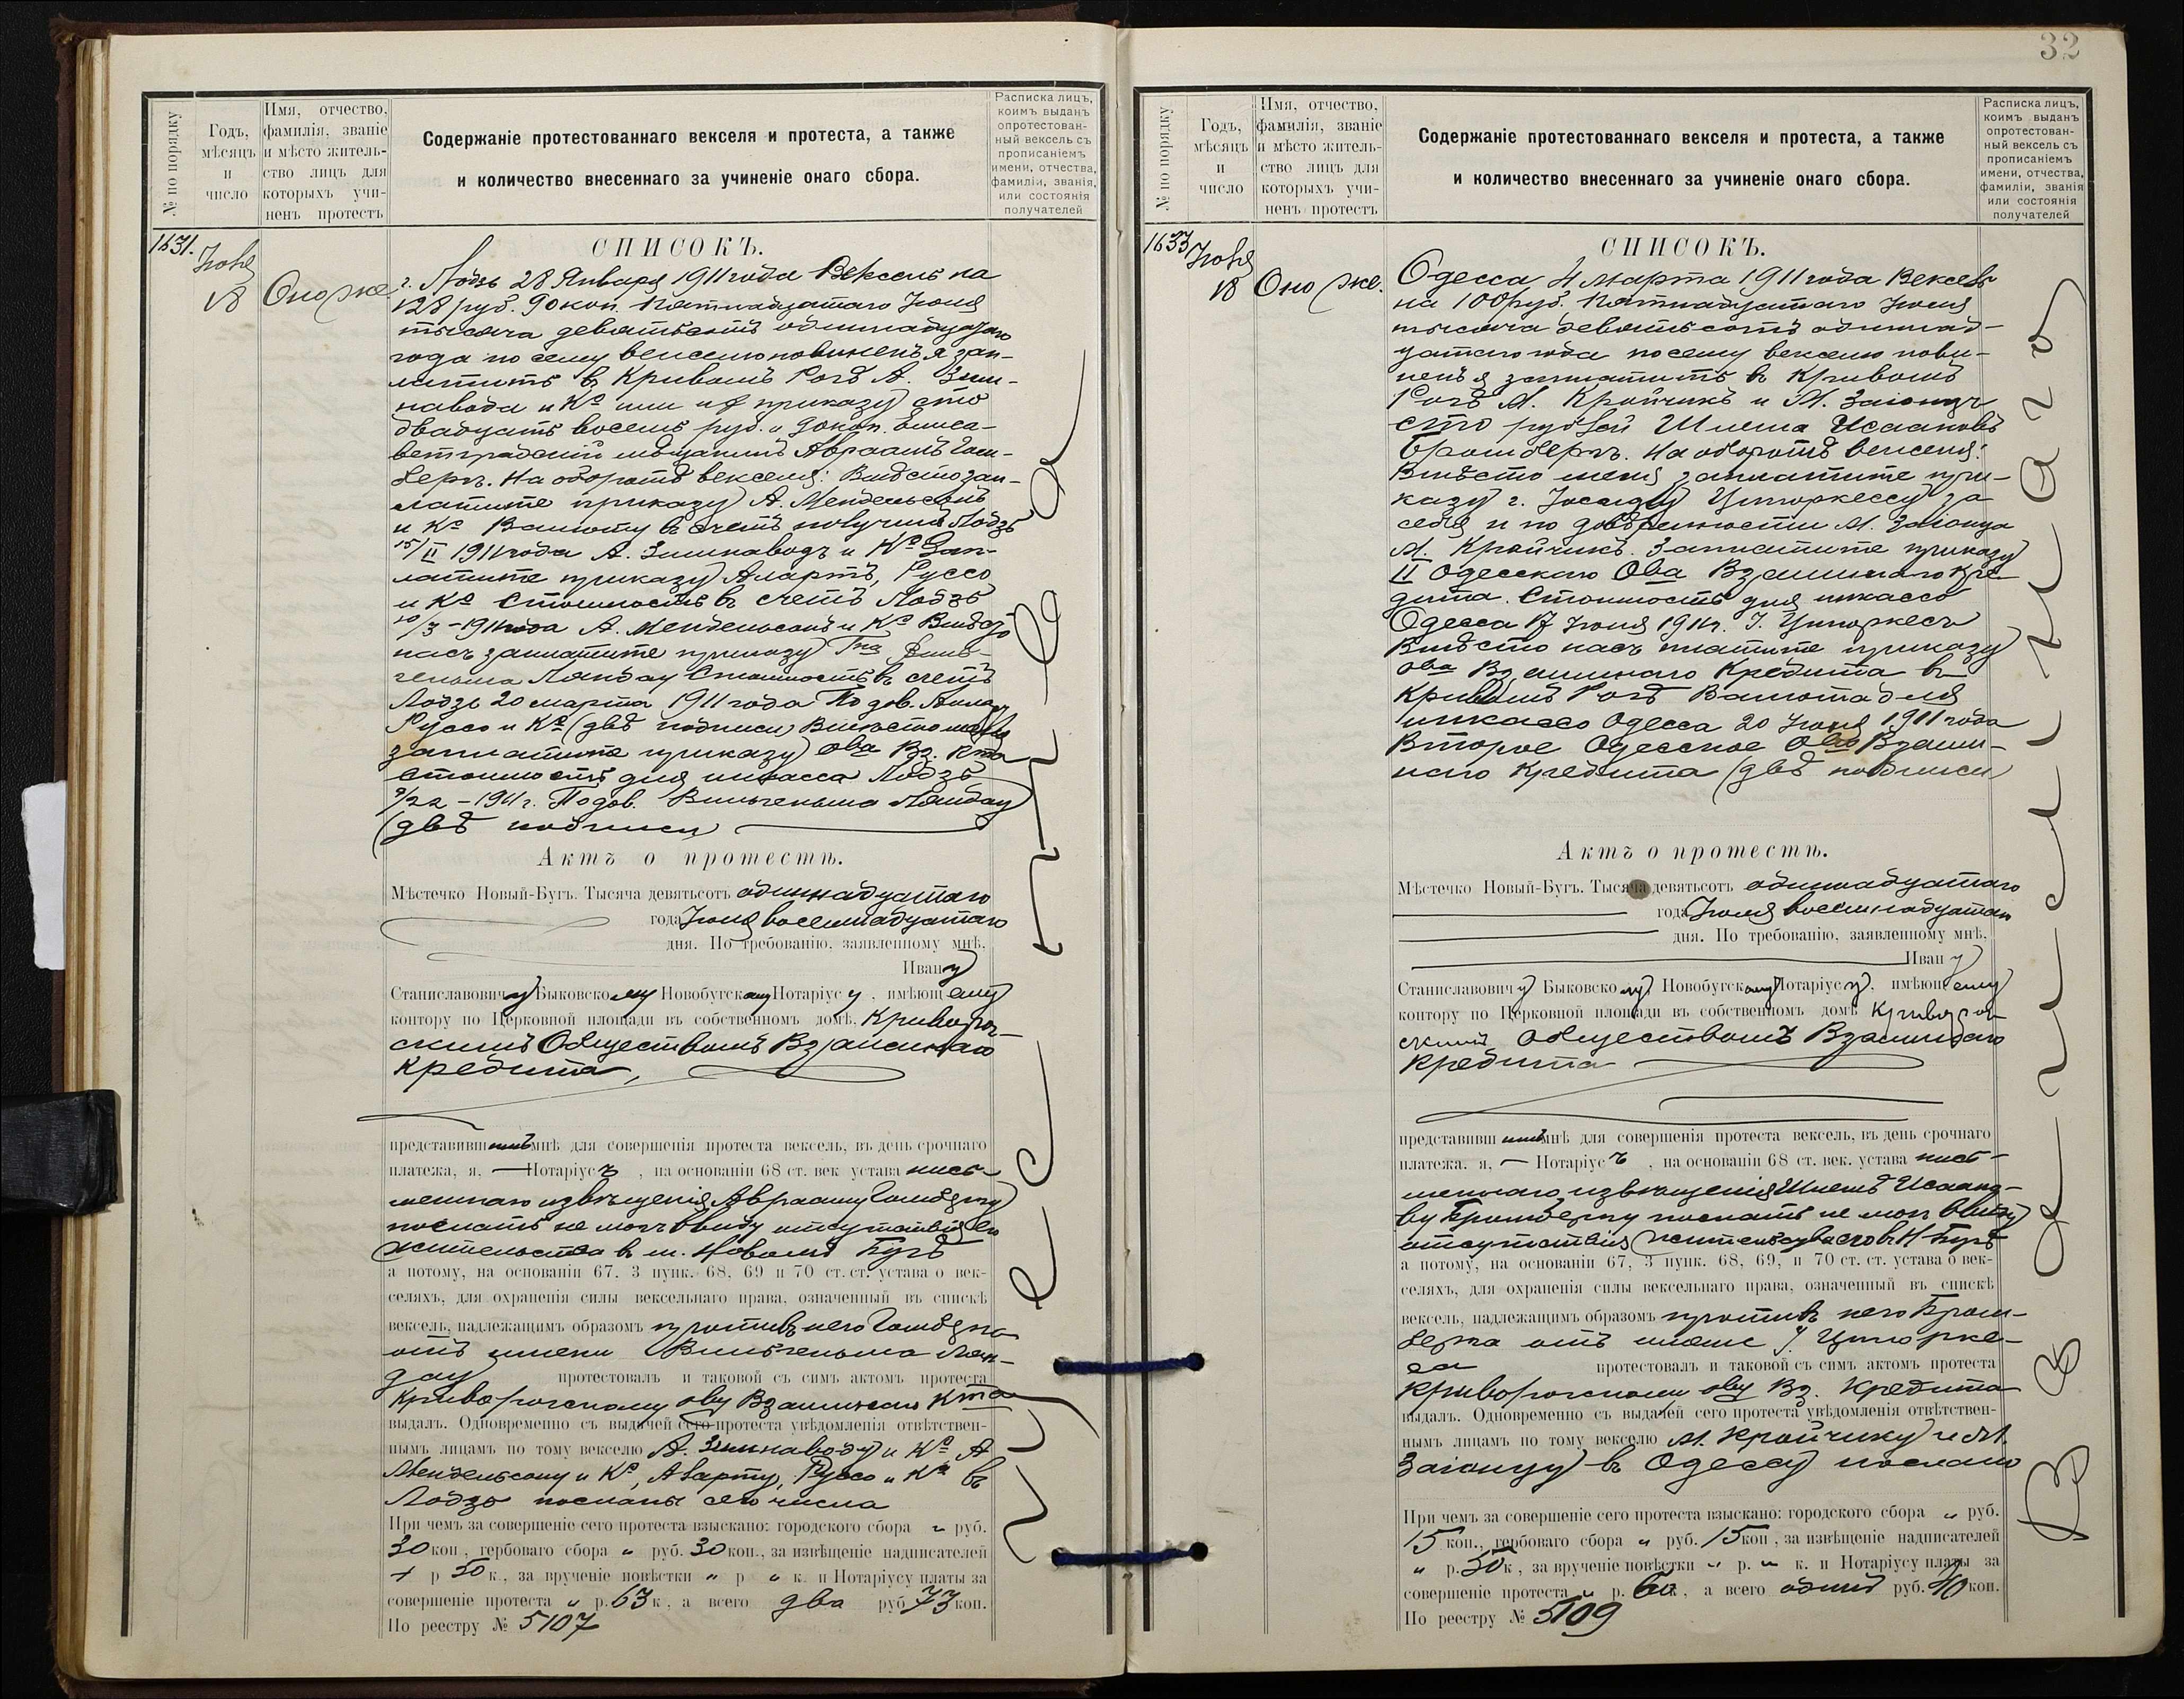 № по порядку
Годъ,
мѣсяцъ
и
число
Имя, отчество,
фамилія, званіе
и мѣсто житель-
ство лицъ для
которыхъ учи-
ненъ протестъ
Содержаніе протестованнаго векселя и протеста, а также
и количество внесеннаго за учиненіе онаго сбора.
Расписка лицъ,
коимъ выданъ
опротестован-
ный вексель съ
прописаніемъ
имени, отчества,
фамиліи, званія,
или состоянія
получателей
1631.
Іюня
18
Оно же
СПИСОКЪ.
г. Лодзь 28 Января 1911 года Вексель на
128 руб. 90 коп. Пятнадцатаго Іюня
тысяча девятьсотъ одиннадцатаго
года по сему векселю повиненъ я зап-
латить въ Кривомъ Рогѣ А. Зим-
навода и Кº или их приказу сто
двадцать восемь руб. и 90 коп. Елиса-
ветградскій мѣщанинъ Авраамъ Гом-
бергъ. На оборотѣ векселя: Вмѣсто зап-
латите приказу А. Мендельсонъ
и Кº Валюту въ счетъ получилъ Лодзь
15/II 1911 года А. Зимнаводъ и Кº Зап-
латите приказу Алартъ, Руссо
и Кº Стоимость въ счетъ Лодзь
10/3 - 1911 года А. Мендельсонъ и Кº Вмѣсто
насъ заплатите приказу Гна Виль-
гельма Ландау Стоимость въ счетъ
Лодзь 20 марта 1911 года По дов. Алартъ
Руссо и Кº (двѣ подписи) Вмѣсто меня
заплатите приказу Ова Вз. Кта
Стоимость для инкасса Лодзь
9/22 - 1911 г. По дов. Вильгельма Ландау
(двѣ подписи)
Актъ о протестѣ.
Мѣстечко Новый-Бугъ. Тысяча девятьсотъ одиннадцатаго
года Іюня восемнадцатаго
дня. По требованію, заявленному мнѣ,
Ивану
Станиславовичу Быковскому Новобугскому Нотаріусу, имѣющему
контору по Церковной площади въ собственномъ домѣ, Криворог-
скимъ Обществомъ Взаимнаго
Кредита,
представившимъ мнѣ для совершенія протеста вексель, въ день срочнаго
платежа, я, Нотаріусъ, на основаніи 68 ст. век устава пись-
меннаго извѣщенія Аврааму Гомбергу
послать не могъ ввиду отсутствія его
жительства в м. Новомъ Бугѣ
а потому, на основаніи 67. 3 пунк. 68, 69 и 70 ст. ст. устава о век-
селяхъ, для охраненія силы вексельнаго права, означенный въ спискѣ
вексель, надлежащимъ образомъ противъ него Гомберга
отъ имени Вильгельма Лан-
дау протестовалъ и таковой съ симъ актомъ протеста
Криворогскому Ову Взаимнаго Кта
выдалъ. Одновременно съ выдачей сего протеста увѣдомленія отвѣтствен-
нымъ лицамъ по тому векселю А. Зимнаводу и Кº А
Мендельсону и Кº, Аларту, Руссо и Кº въ
Лодзь посланы сего числа
При чемъ за совершеніе сего протеста взыскано: городского сбора " руб.
30 коп., гербоваго сбора " руб. 30 коп., за извѣщеніе надписателей
1 р 50 к., за врученіе повѣстки " р " к. и Нотаріусу платы за
совершеніе протеста " р. 63 к, а всего два руб 73 коп.
По реестру № 5107
32
№ по порядку
Годъ,
мѣсяцъ
и
число
Имя, отчество,
фамилія, званіе
и мѣсто житель-
ство лицъ для
которыхъ учи-
ненъ протестъ
Содержаніе протестованнаго векселя и протеста, а также
и количество внесеннаго за учиненіе онаго сбора.
Расписка лицъ,
коимъ выданъ
опротестован-
ный вексель съ
прописаніемъ
имени, отчества,
фамиліи, званія
или состоянія
получателей
1633
Іюня
18
Оно же.
СПИСОКЪ.
Одесса 4 марта 1911 года Вексель
на 100 руб. Пятнадцатаго Іюня
тысяча девятьсотъ одиннад-
цатаго года по сему векселю пови-
ненъ я заплатить въ Кривомъ
Рогѣ М. Крайчикъ и М. Заіонцъ
сто рублей Шлема Исааковъ
Бромбергъ. На оборотѣ векселя:
Вмѣсто меня заплатите при-
казу г. Іосифу Ципоркесу за
себя и по довѣренности М. Заіонца
М. Крайчикъ. Заплатите приказу
II Одесскаго Ова Взаимнаго Кре-
дита. Стоимость для инкассо
Одесса 17 Іюня 1911 г. І. Ципоркесъ
Вмѣсто насъ платите приказу
Ова Взаимнаго Кредита въ
Кривомъ Рогѣ Валюта для
инкассо Одесса 20 Іюня 1911 года
Второе Одесское Ово Взаим-
наго Кредита (двѣ подписи)
Актъ о протестѣ.
Мѣстечко Новый-Бугъ. Тысяча девятьсотъ одиннадцатаго
года Іюня восемнадцатаго
дня. По требованію, заявленному мнѣ,
Ивану
Станиславовичу Быковскому, Новобугскому Нотаріусу, имѣющему
контору по Церковной площади въ собственномъ домѣ Криворог-
скимъ Обществомъ Взаимнаго
Кредита
представившимъ мнѣ для совершенія протеста вексель, въ день срочнаго
платежа, я, Нотаріусъ, на основаніи 68 ст. век. устава пись-
меннаго извѣщенія Шлемѣ Исаако-
ву Бромбергу послать не могъ ввиду
отсутствія жительства его въ Н Бугѣ
а потому, на основаніи 67, 3 пунк. 68, 69, и 70 ст. ст. устава о век-
селяхъ, для охраненія силы вексельнаго права, означенный въ спискѣ
вексель, надлежащимъ образомъ противъ него Бром-
берга отъ имени І. Ципорке-
са протестовалъ и таковой съ симъ актомъ протеста
Криворогскому Ову Вз. Кредита
выдалъ. Одновременно съ выдачей сего протеста увѣдомленія отвѣтствен-
нымъ лицамъ по тому векселю М. Крайчику и М.
Заіонцу въ Одессу послано
При чемъ за совершеніе сего протеста взыскано: городского сбора " руб.
15 коп., гербоваго сбора " руб. 15 коп, за извѣщеніе надписателей
" р. 50 к, за врученіе повѣстки " р. " к. и Нотаріусу платы за
совершеніе протеста " р. 60 к, а всего одинъ руб. 40 коп.
По реестру № 5109